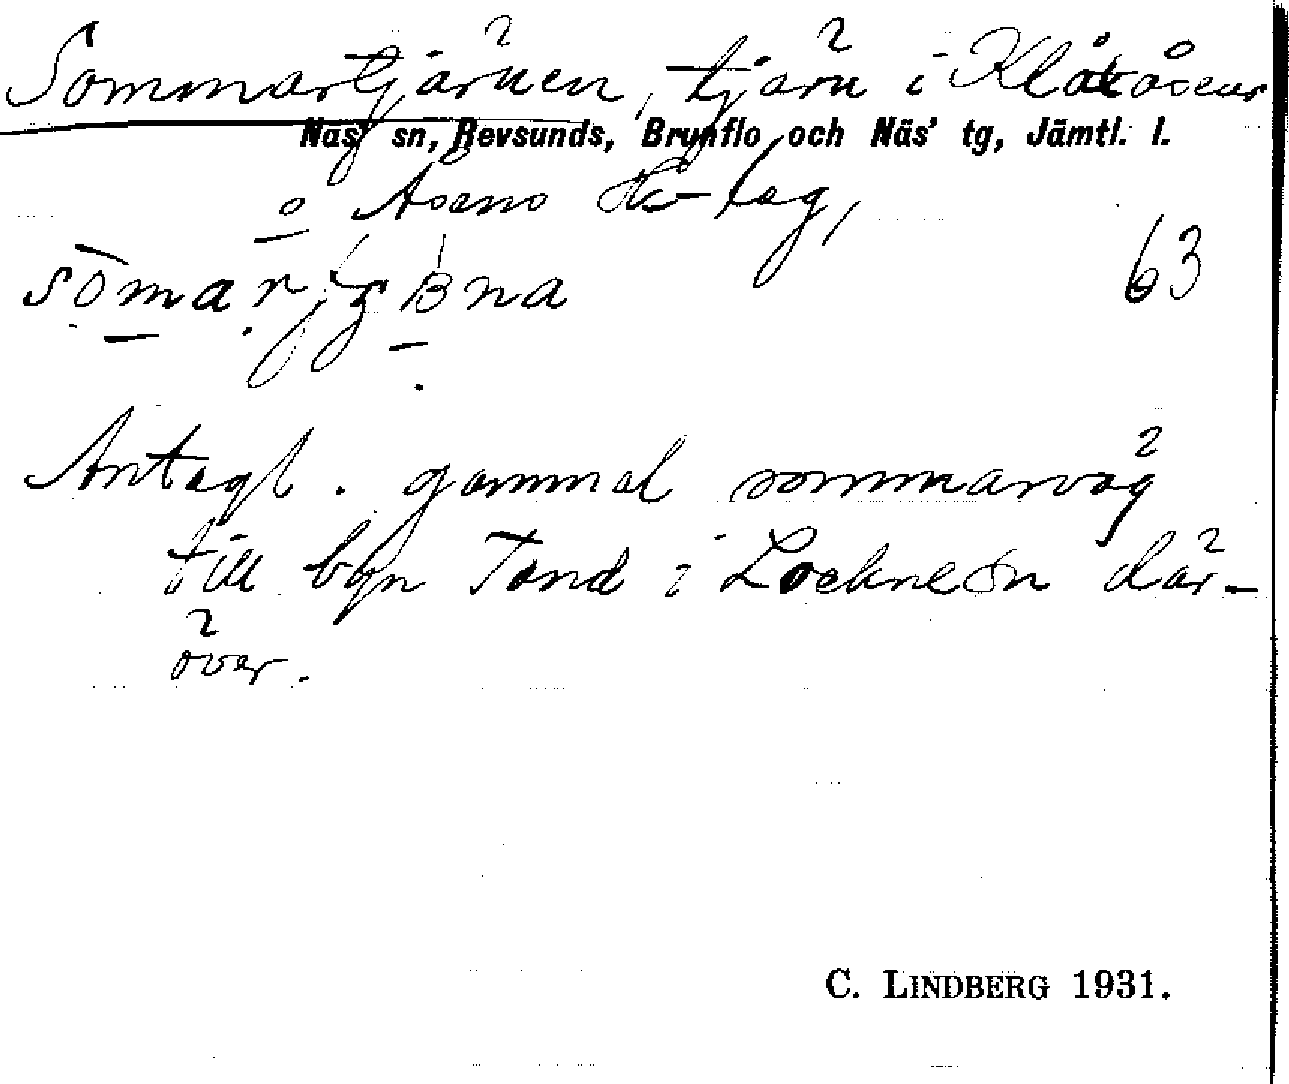 Sommartjärnen, tjärn i Klåxåsens
Näs' sn, Revsunds, Brunflo och Näs' tg, Jämtl. l.
o Åsens sk-lag,
63
Antagl. gammal sommarväg
till byn Tand i Lockne sn där-
över.
C. LINDBERG 1931.